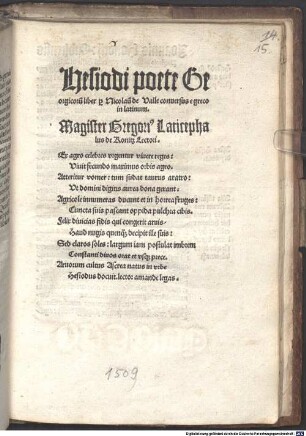 14.
15.
Hesiodi poete Ge
orgicorū liber ꝑ Nicolaū de Valle conuersus e greco
in latinum.
Magister Gregoriꝰ Laticepha
lus de Konitz Lectori.
Ex agro celebres
Viuit secundo maximus orbis agro.
Atteritur vomer: tum sudat taurus aratro:
Ut domini digitus aurea dona gerant.
Agricole innumeras ducunt et in horrea fruges:
Cuncta suis pascant oppida pulchra cibis.
fidis qui congerit aruis:
Haud nugis quemqȝ decipit ille suis:
Sed claros soles: largum iam postulat imbrem
Constanti diuos orat et vsqȝ prece.
Aruorum cultus Ascrea natus in vrbe
Hesiodus docuit. lector amande legas.
1509